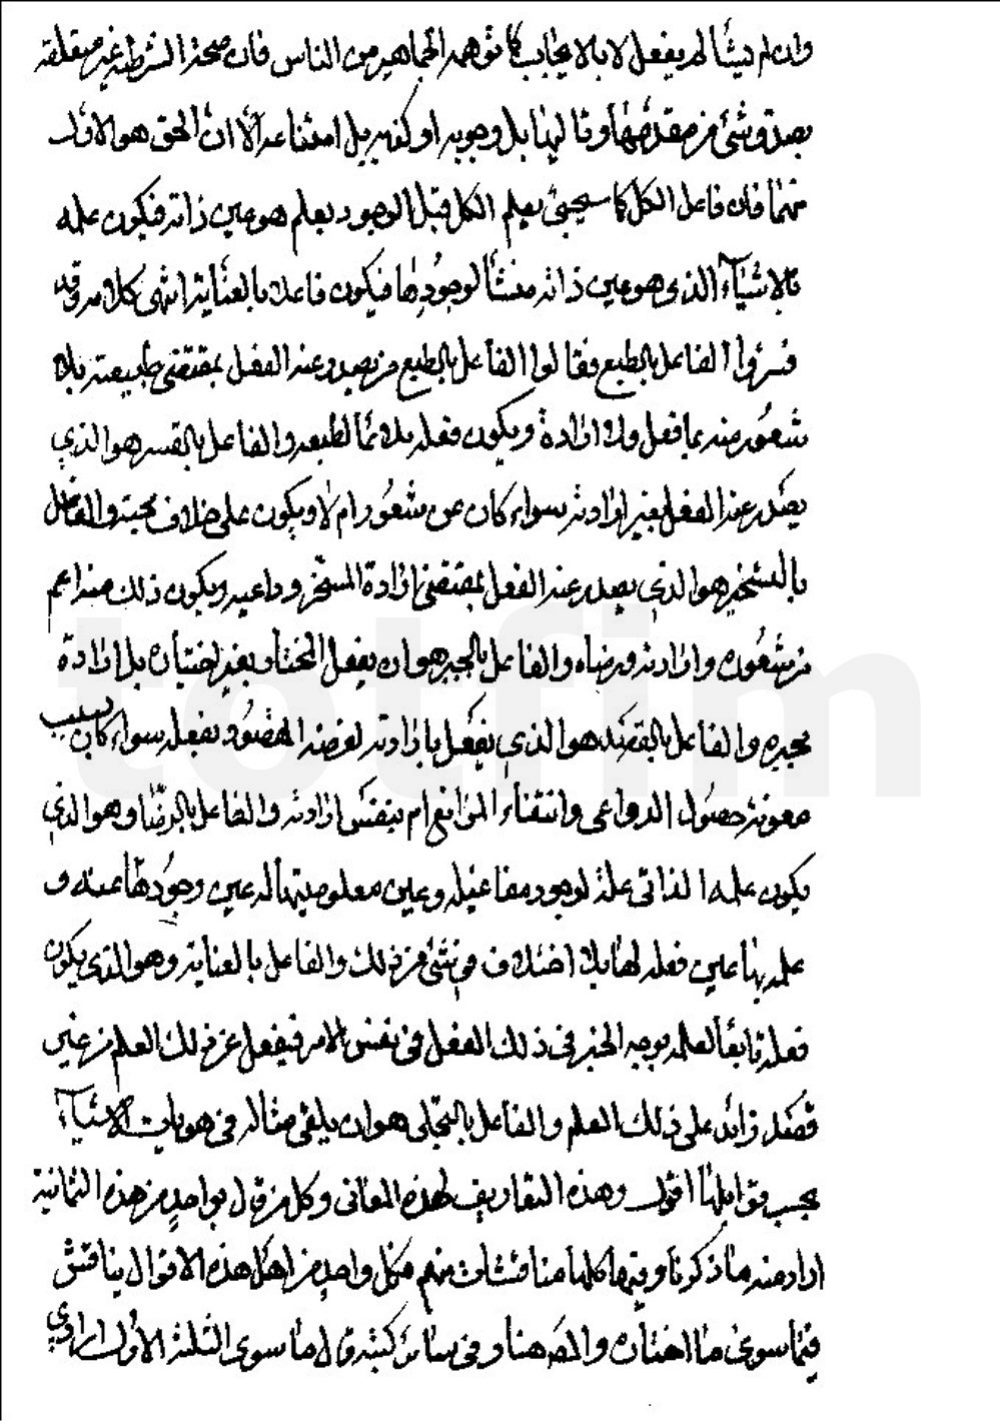 وان لم يشأ لم يفعل لا بالايجاب كما توهمه الجماهير من الناس فان صحة الشرطية غير متعلقة
بصدق شئ من مقدمها وتاليها بل وجوبه او كذبه بل امتناعه الا ان الحق هو الاول
منهما فان فاعل الكل كما سيجئ يعلم الكل قبل الوجود بعلم هو عين ذاته فيكون علمه
بالاشيآء الذى هو عين ذاته منشأ لوجودها فيكون فاعلا بالعناية انتهى كلامه وقد
فسروا الفاعل بالطبع فقالوا الفاعل بالطبع من يصدر عنه الفعل بمقتضى طبيعته بلا
شعور منه بما فعل ولا ارادة ويكون فعله ملائما لطبعه والفاعل بالقسر هو الذي
يصدر عنه الفعل بغير ارادته سواء كان عن شعور ام لا ويكون على خلاف محبته والفاعل
بالتسخير هو الذي يصدر عنه الفعل بمقتضى ارادة المسخّر وداعيه ويكون ذلك منه اعم
من شعوره وارادته ورضاه والفاعل بالجبر هو ان يفعل المختار بغير اختياره بل ارادة
مجبره والفاعل بالقصد هو الذي يفعل بارادته لغرضه المقصود بفعله سواء كان بسبب
معونة حصول الدواعى وانتفاء الموانع ام بنفس ارادته والفاعل بالرضا وهو الذي
يكون علمه الذاتى علة لوجود مفاعيله وعين معلوميتها له عين وجودها عنه و
علمه بها عين فعله لها بلا اختلاف فى شئ من ذلك والفاعل بالعناية وهو الذى يكون
فعله تابعا لعلمه بوجه الخير فى ذلك الفعل فى نفس الامر فيفعل عن ذلك العلم من غير
قصد زائد على ذلك العلم والفاعل بالتجلى هو ان يلقى مثاله فى هويات الاشيآء
بحسب قوابلها اقول وهذه التعاريف لهذه المعانى وكل من قال بواحدٍ من هذه الثمانية
اراد منه ما ذكرنا وفيها كلها مناقشات منهم فكل واحد من اهل هذه الاقوال يناقش
فيما سوى ما اختاره والمصّ هنا وفى سائر كتبه قال ما سوى الثلثة الأول ارادي